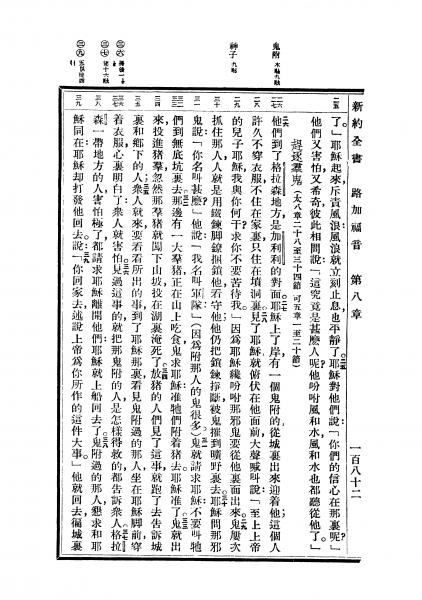 新約全書 路加福音 第八章 一百八十二
二五
了。」耶穌起來斥責風浪風浪就立刻止息也平靜了耶穌對他們說「你們的信心在那裏呢」
他們又害怕又希奇彼此相問說「這究竟是甚麼人呢他吩咐風和水風和水也都聽從他了。」
趕逐羣鬼(太八章二十八至三十四節 可五章一至二十節)
鬼附
二六
他們到了格拉森地方是加利利的對面耶穌上了岸有一個鬼附的從城裏出來迎着他這個人
許久不穿衣服不住在家裏只住在墳洞裏見了耶穌就俯伏在他面前大聲喊叫說「至上上帝
神子
二九
的兒子耶穌我與你何干求你不要苦待我。」因爲耶穌纔吩咐那邪鬼要從他裏面出來鬼屢次
三十
抓住那人人就是用鐵鍊脚鐐捆鎖他看守他他仍把鎖鍊掙斷被鬼攆到曠野裏去耶穌問那邪
三一
鬼說「你名叫甚麼」他說「我名叫軍隊」(因爲附那人的鬼很多)鬼就請求耶穌不要叫牠
們到無底坑裏去那邊有一大羣豬正在山上吃食鬼求耶穌准牠們附着豬去耶穌准了鬼就出
三四
來投進豬羣忽然那豬就闖下山坡投在湖裏淹死了放豬的人們見了這事就跑了去告訴城
三五
裏和鄉下的人衆人就來要看看所出的事到了耶穌那裏看見鬼附過的那人坐在耶穌脚前穿
着衣服心裏明白了衆人就害怕見過這事的就把那鬼附的人是怎樣得救的都告訴衆人格拉
三八
森一帶地方的人害怕極了都請求耶穌離開他們耶穌就上船回去了鬼附過的那人懇求和耶
三九
穌同在耶穌却打發他回去說「你回家去述說上帝爲你所作的這件大事」他就回去徧城裏